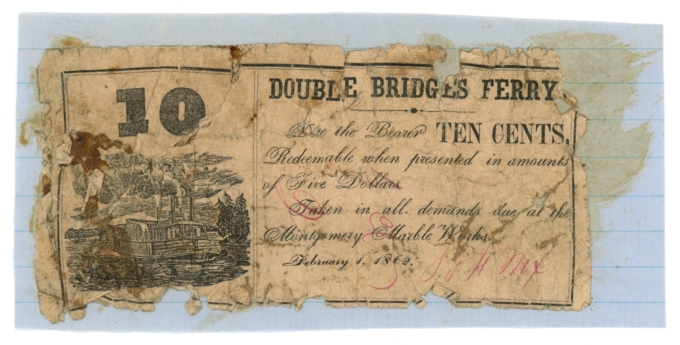 10
DOUBLE BRIDGES FERRY
the Bearer TEN CENTS,
Redeemable when presented in amounts
of Five Dollars
Taken in all demands due at the
Montgomery Marble Works.
February 1, 1862.